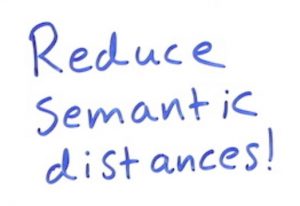 Reduce
semantic
distances!